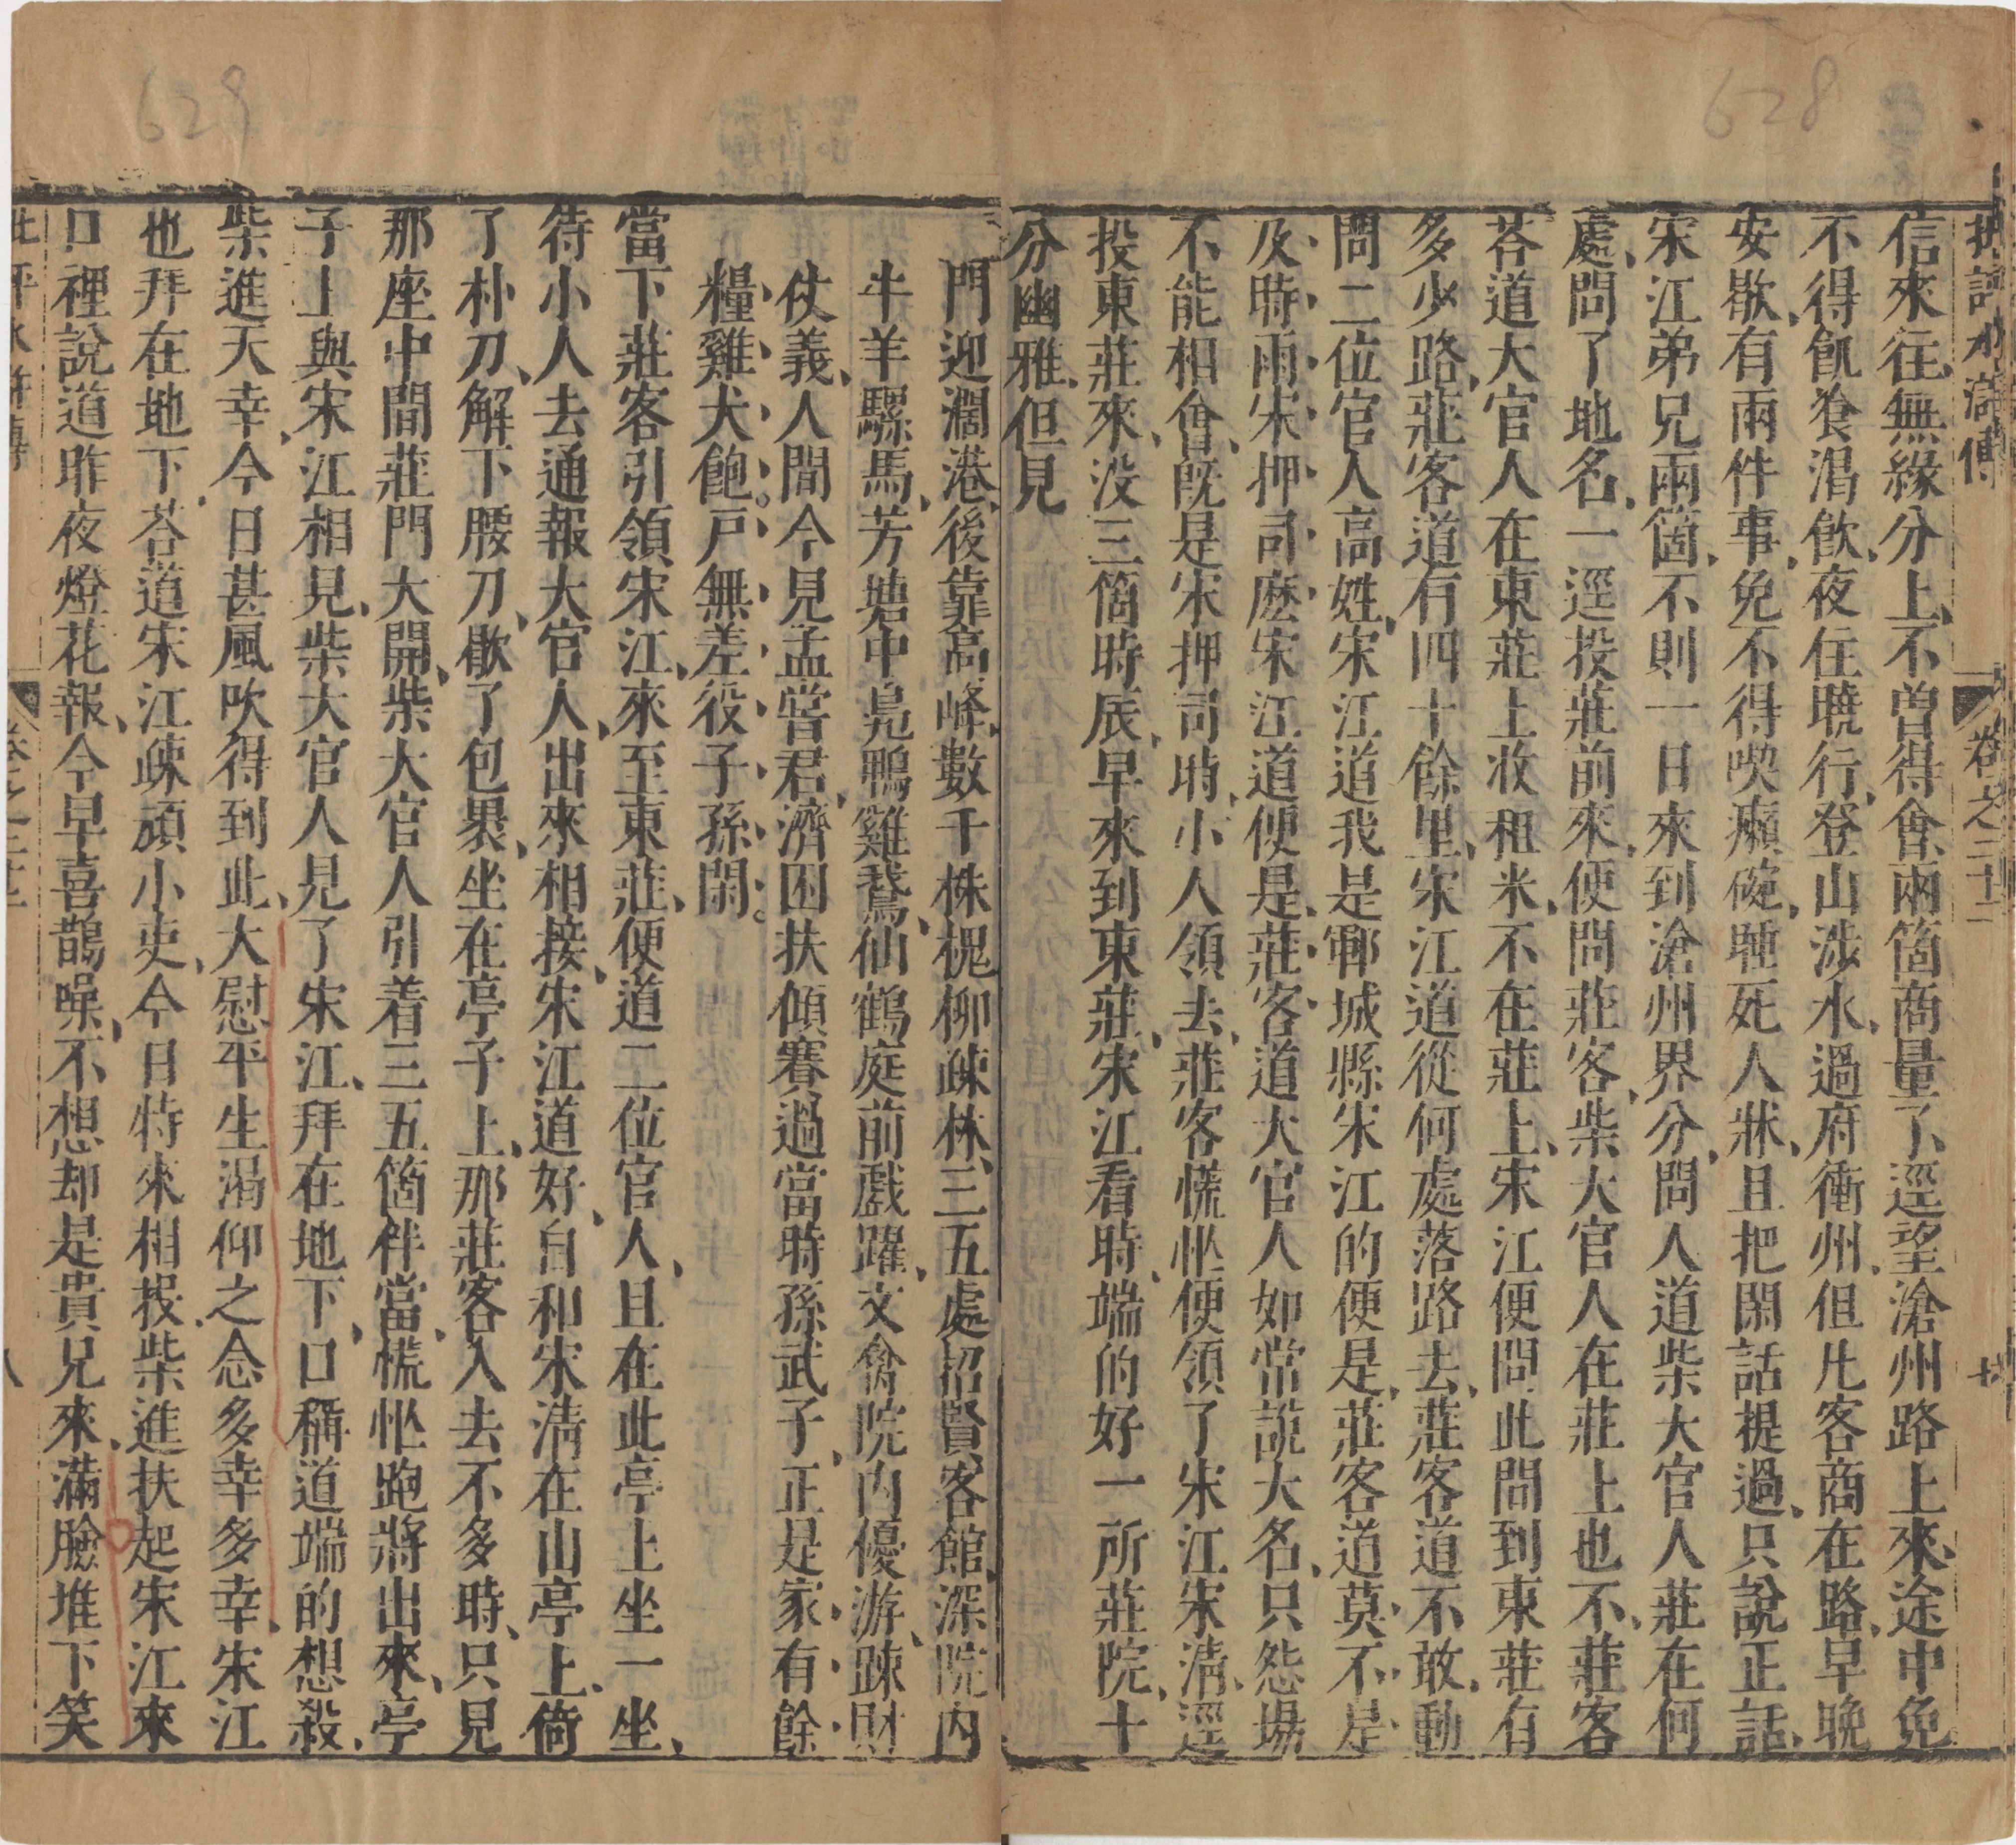 628
批評水滸傳 卷之二十二
信來往無緣分上、不曾得會、兩箇商量了、逕望滄州路上來、途中免
不得飢飡渴飲、夜住曉行、登山涉水、過府衝州、但凡客商在路、早晚
安歇、有兩件事、免不得喫癩碗、睡死人牀、且把閑話提過、只說正話、
宋江弟兄兩箇、不則一日、來到滄州界分、問人道柴大官人莊在何
處、問了地名、一逕投莊前來、便問莊客、柴大官人在莊上也不、莊客
荅道大官人在東莊上收租米、不在莊上、宋江便問此間到東莊有
多少路、莊客道有四十餘里、宋江道從何處落路去、莊客道不敢動
問二位官人高姓、宋江道我是鄆城縣宋江的便是、莊客道莫不是
及時雨宋押司麽、宋江道便是、莊客道大官人如常說大名、只怨悵
不能相會、旣是宋押司時、小人領去、莊客慌忙便領了宋江宋淸、逕
投東莊來、没三箇時辰、早來到東莊、宋江看時、端的好一所莊院、十
分幽雅、但見
629
門迎濶港、後靠高峰、數千株槐柳疎林、三五處招賢客館、深院內
牛羊騾馬、芳塘中鳧鴨雞鵞、仙鶴庭前戲躍、文禽院內優游、疎財
仗義、人間今見孟嘗君、濟困扶傾、賽過當時孫武子、正是家有餘
糧雞犬飽。戶無差役子孫閑。
當下莊客引領宋江、來至東莊、便道二位官人、且在此亭上坐一坐、
待小人去通報大官人、出來相接、宋江道好、自和宋淸在山亭上、倚
了朴刀、解下腰刀、歇了包褁、坐在亭子上、那莊客入去不多時、只見
那座中間莊門大開、柴大官人引着三五箇伴當、慌忙跑將出來、亭
子上與宋江相見、柴大官人見了宋江、拜在地下、口稱道端的想殺、
柴進天幸、今日甚風吹得到此、大慰平生渴仰之念、多幸多幸、宋江
也拜在地下、荅道宋江疎頑小吏、今日特來相投、柴進扶起宋江來
口裡說道昨夜燈花報、今早喜鵲噪、不想却是貴兄來、滿臉堆下笑